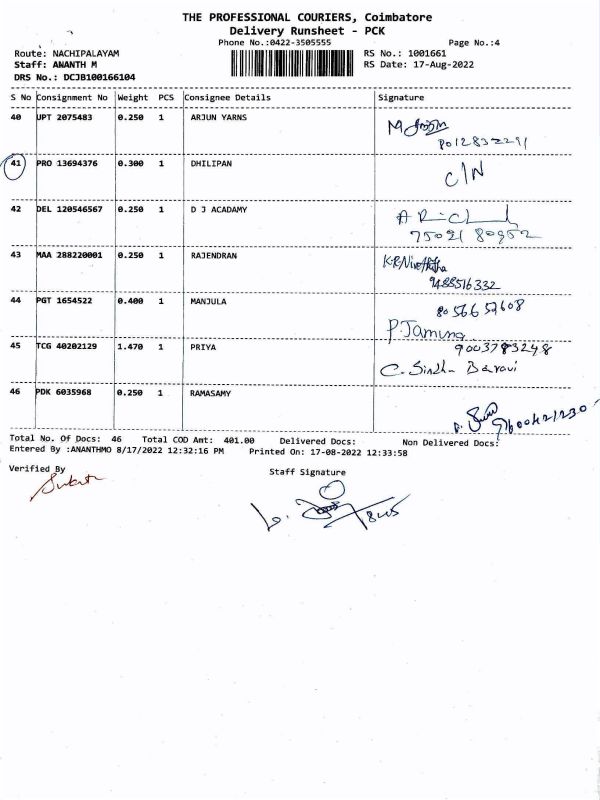 THE PROFESSIONAL COURIERS, Coimbatore
Delivery Runsheet - PCK
Phone No.:0422-3505555 Page No.:4
Route: NACHIPALAYAM RS No.: 1001661
Staff: ANANTH M RS Date: 17-Aug-2022
DRS No.: DCJB100166104
S No Consignment No Weight PCS Consignee Details Signature
40 UPT 2075483 0.250 1 ARJUN YARNS
41 PRO 13694376 0.300 1 DHILIPAN C/N
42 DEL 120546567 0.250 1 D J ACADAMY
75021 80952
43 MAA 288220001 0.250 1 RAJENDRAN K.R.Nivethitha
9488516332
44 PGT 1654522 0.400 1 MANJULA 80 56657608
P.Jamuna
45 TCG 40202129 1.470 1 PRIYA 9003783248
C. Sindhu Baravi
46 PDK 6035968 0.250 1 RAMASAMY
9600421230
Total No. Of Docs: 46 Total COD Amt: 401.00 Delivered Docs: Non Delivered Docs:
Entered By :ANANTHMO 8/17/2022 12:32:16 PM Printed On: 17-08-2022 12:33:58
Verified By Staff Signature